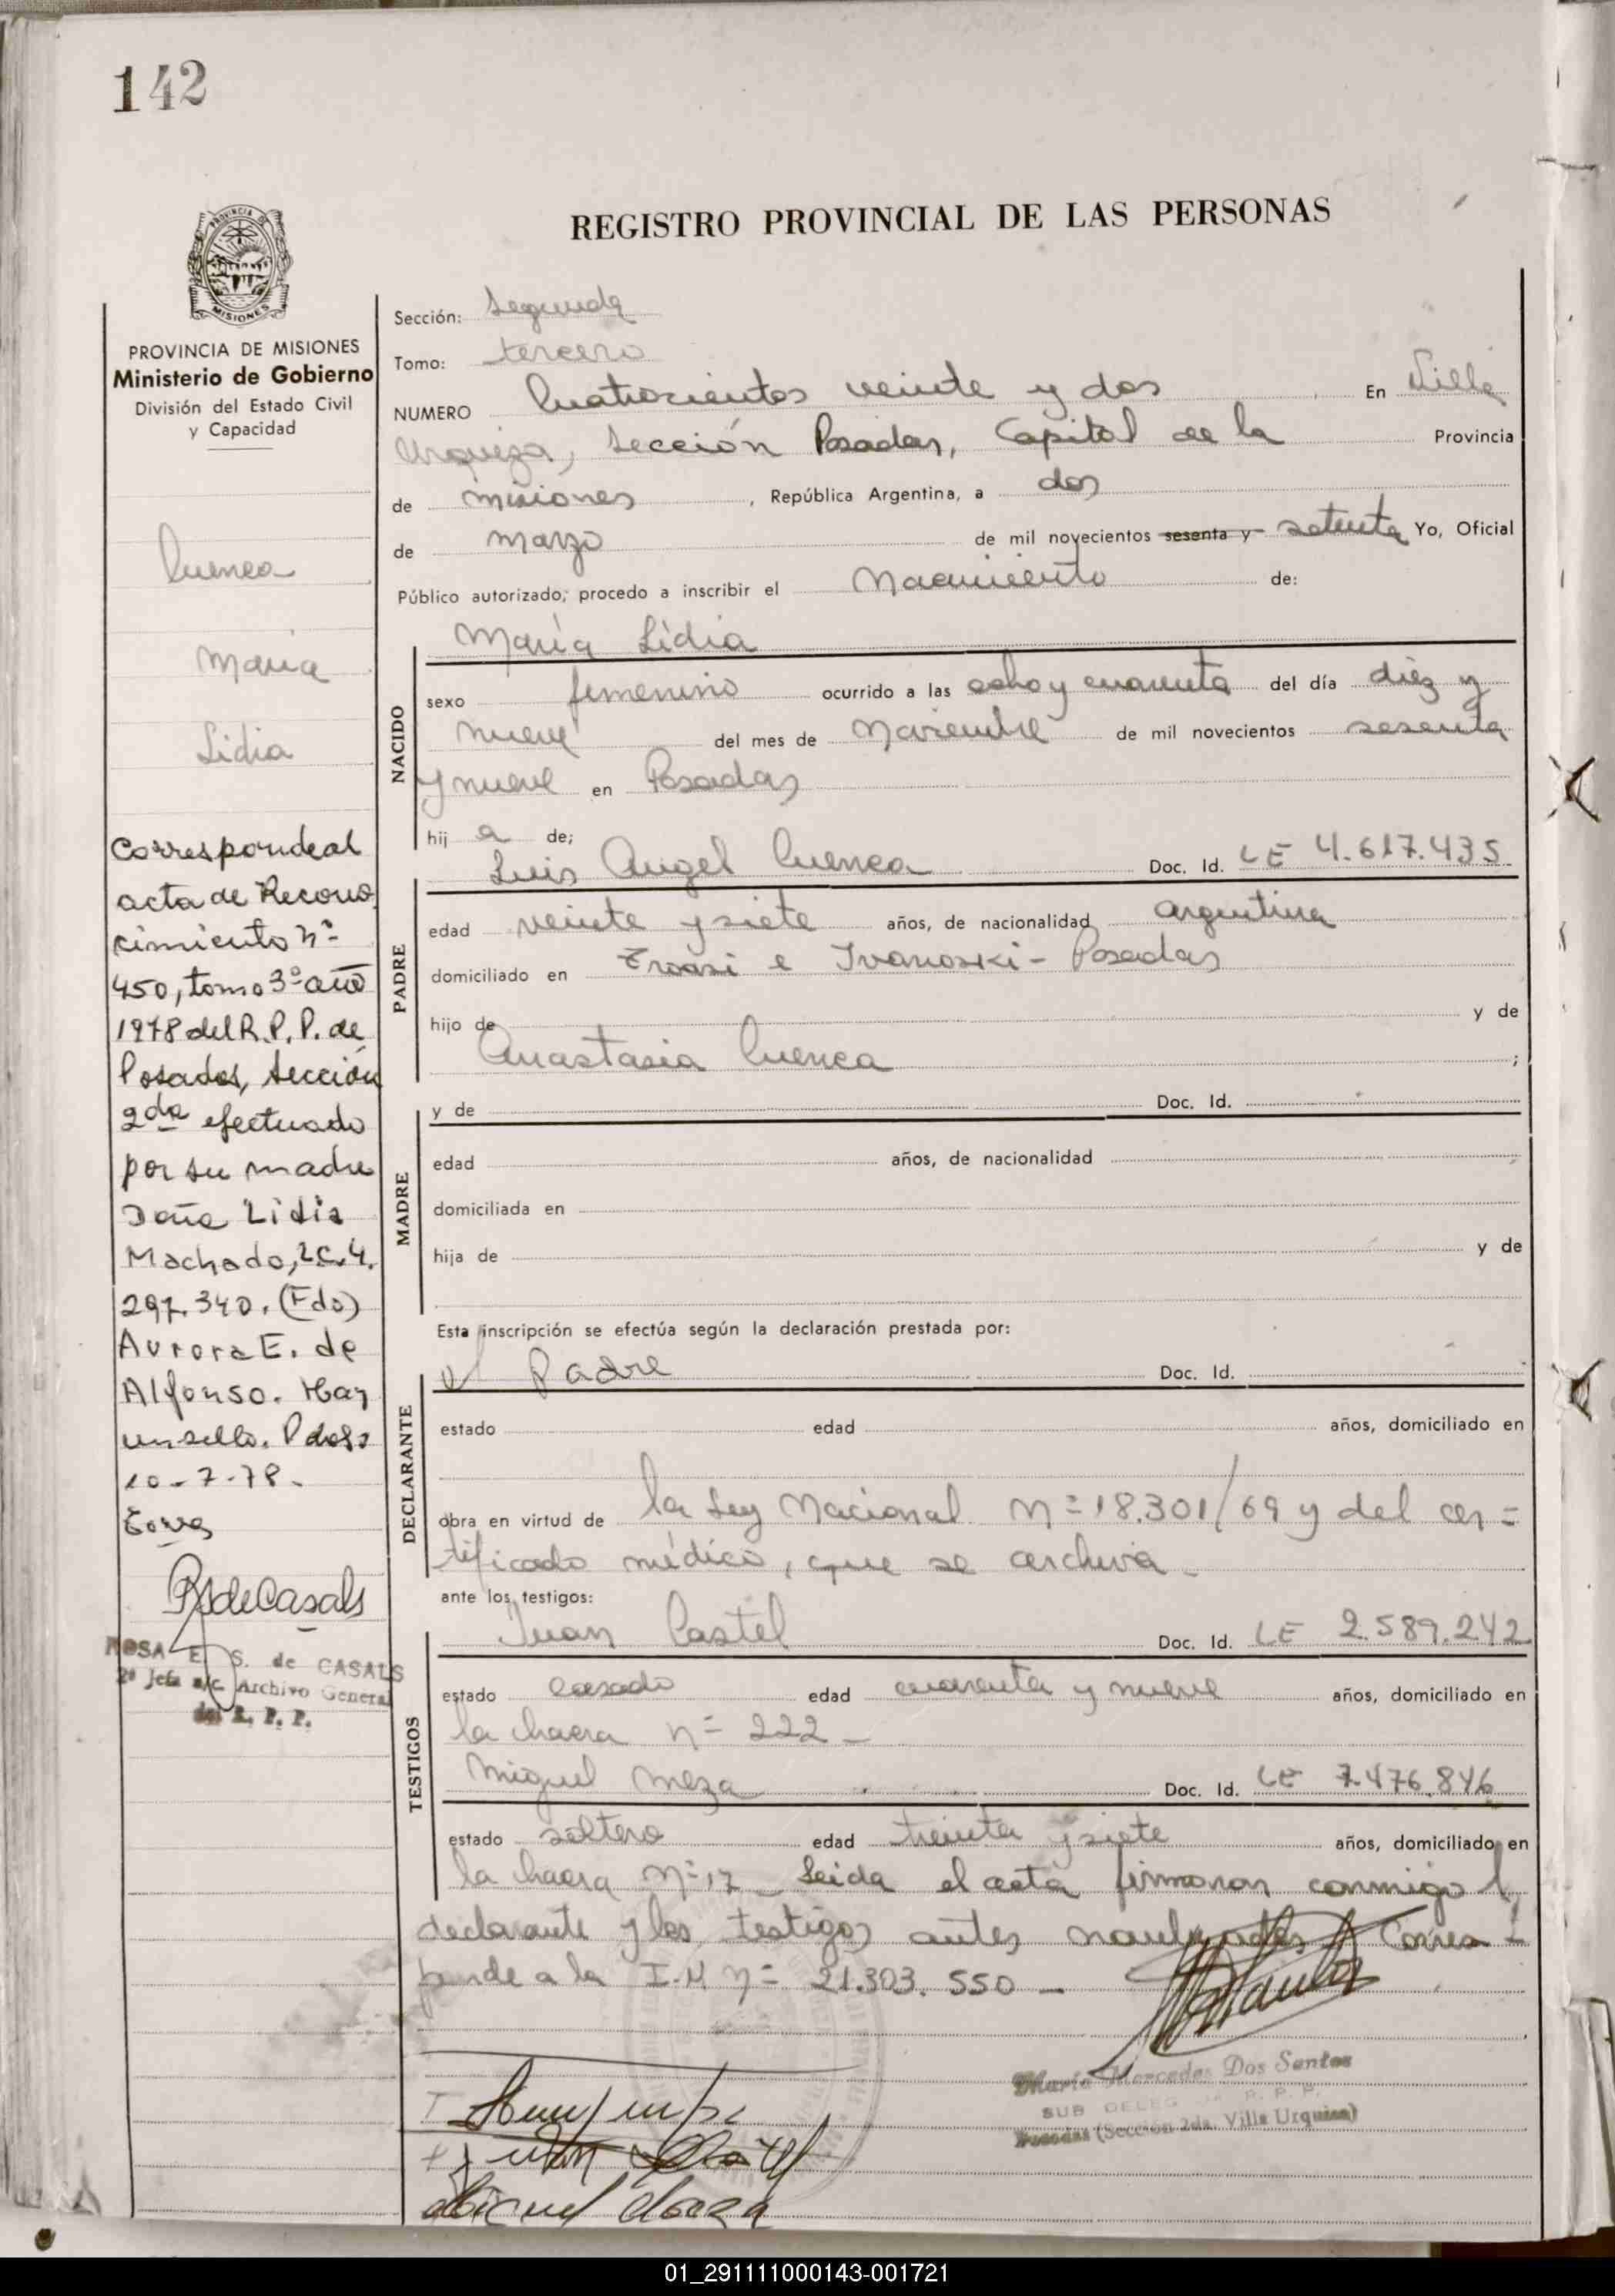 142
REGISTRO PROVINCIAL DE LAS PERSONAS
PROVINCIA DE MISIONES
Ministerio de Gobierno
División del Estado Civil
y Capacidad
Cuenca
Maria
Lidia
Corresponde al
acta de Recono
cimiento nº
450, tomo 3º año
1978 del R.P.P. de
Posadas, Sección
2da efectuado
por su madre
Doña Lidia
Machado, LC. 4.
297.340. (Fdo)
Aurora E. de
Alfonso. Hay
un sello. Pdas
10-7-78-
RSdeCasals
ROSA E. S. de CASALS
2º Jefa a/c Archivo General
del R. P. P.
Sección: Segunda
Tomo: tercero
NUMERO Cuatrocientos veinte y dos, En Villa
Urquiza, Sección Posadas, Capital de la Provincia
de misiones, República Argentina, a dos
de marzo de mil novecientos sesenta y setenta Yo, Oficial
Público autorizado, procedo a inscribir el Nacimiento de:
María Lidia
NACIDO
sexo femenino ocurrido a las ocho y cuarenta del día diez y
nueve del mes de Noviembre de mil novecientos sesenta
y nueve en Posadas
hij a de;
Luis Angel Cuenca Doc. Id. LE 4.617.435
PADRE
edad veinte y siete años, de nacionalidad argentina
domiciliado en e Ivanoski - Posadas
hijo de y de
Anastasia Cuenca ;
y de Doc. Id.
MADRE
edad años, de nacionalidad
domiciliada en
hija de y de
Esta inscripción se efectúa según la declaración prestada por:
el Padre Doc. Id.
DECLARANTE
estado edad años, domiciliado en
obra en virtud de la Ley Nacional Nº 18.301/69 y del cer=
tificado médico, que se archiva -
ante los testigos:
Juan Pastel Doc. Id. LE 2.589.242
TESTIGOS
estado casado edad cuarenta y nueve años, domiciliado en
la chacra nº 222 -
Miguel Meza Doc. Id. LE 7.476.846
estado soltero edad treinta y siete años, domiciliado en
la chacra Nº 17 - Leida el acta firmaron conmigo el
declarante y los testigos antes nombrados Corres-
ponde a la I.M Nº 21.303.550 -
María Mercedes Dos Santos
SUB DELEG R. P. P.
Posadas (Sección 2da. Villa Urquiza)
Miguel Meza
01_291111000143-001721